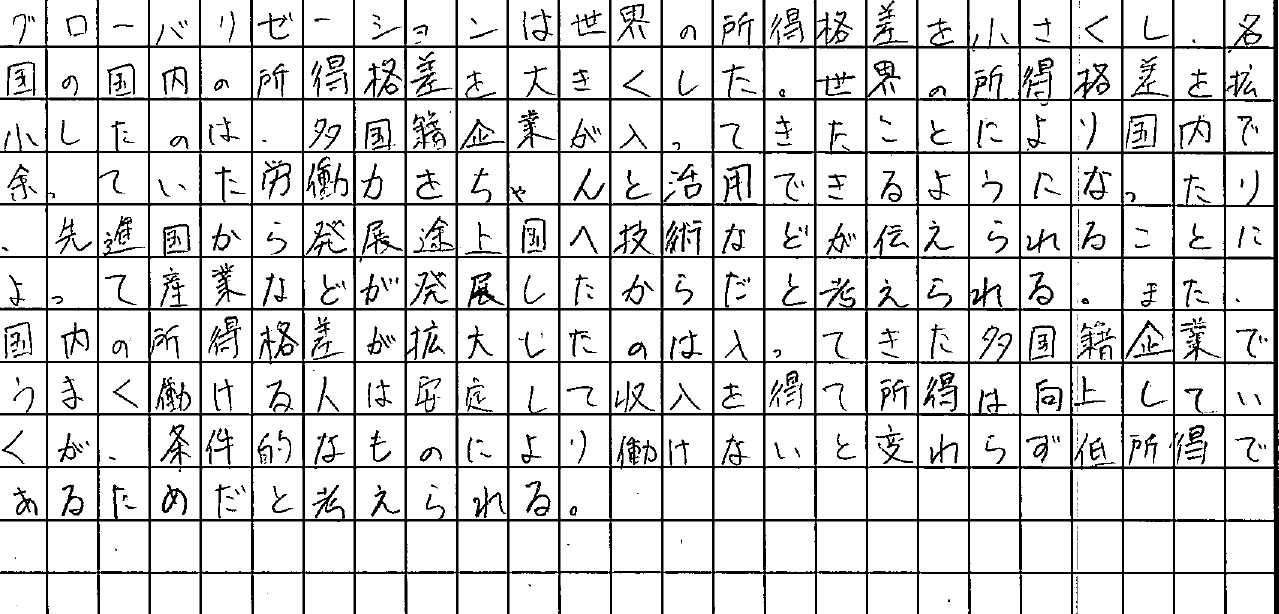 グローバリゼーションは世界の所得格差を小さくし、各
国の国内の所得格差を大きくした。世界の所得格差を拡
小したのは、多国籍企業が入ってきたことにより国内で
余っていた労働力をちゃんと活用できるようになったり
、先進国から発展途上国へ技術などが伝えられることに
よって産業などが発展したからだと考えられる。また、
国内の所得格差が拡大したのは入ってきた多国籍企業で
うまく働ける人は安定して収入を得て所得は向上してい
くが、条件的なものにより働けないと変わらず低所得で
あるためだと考えられる。